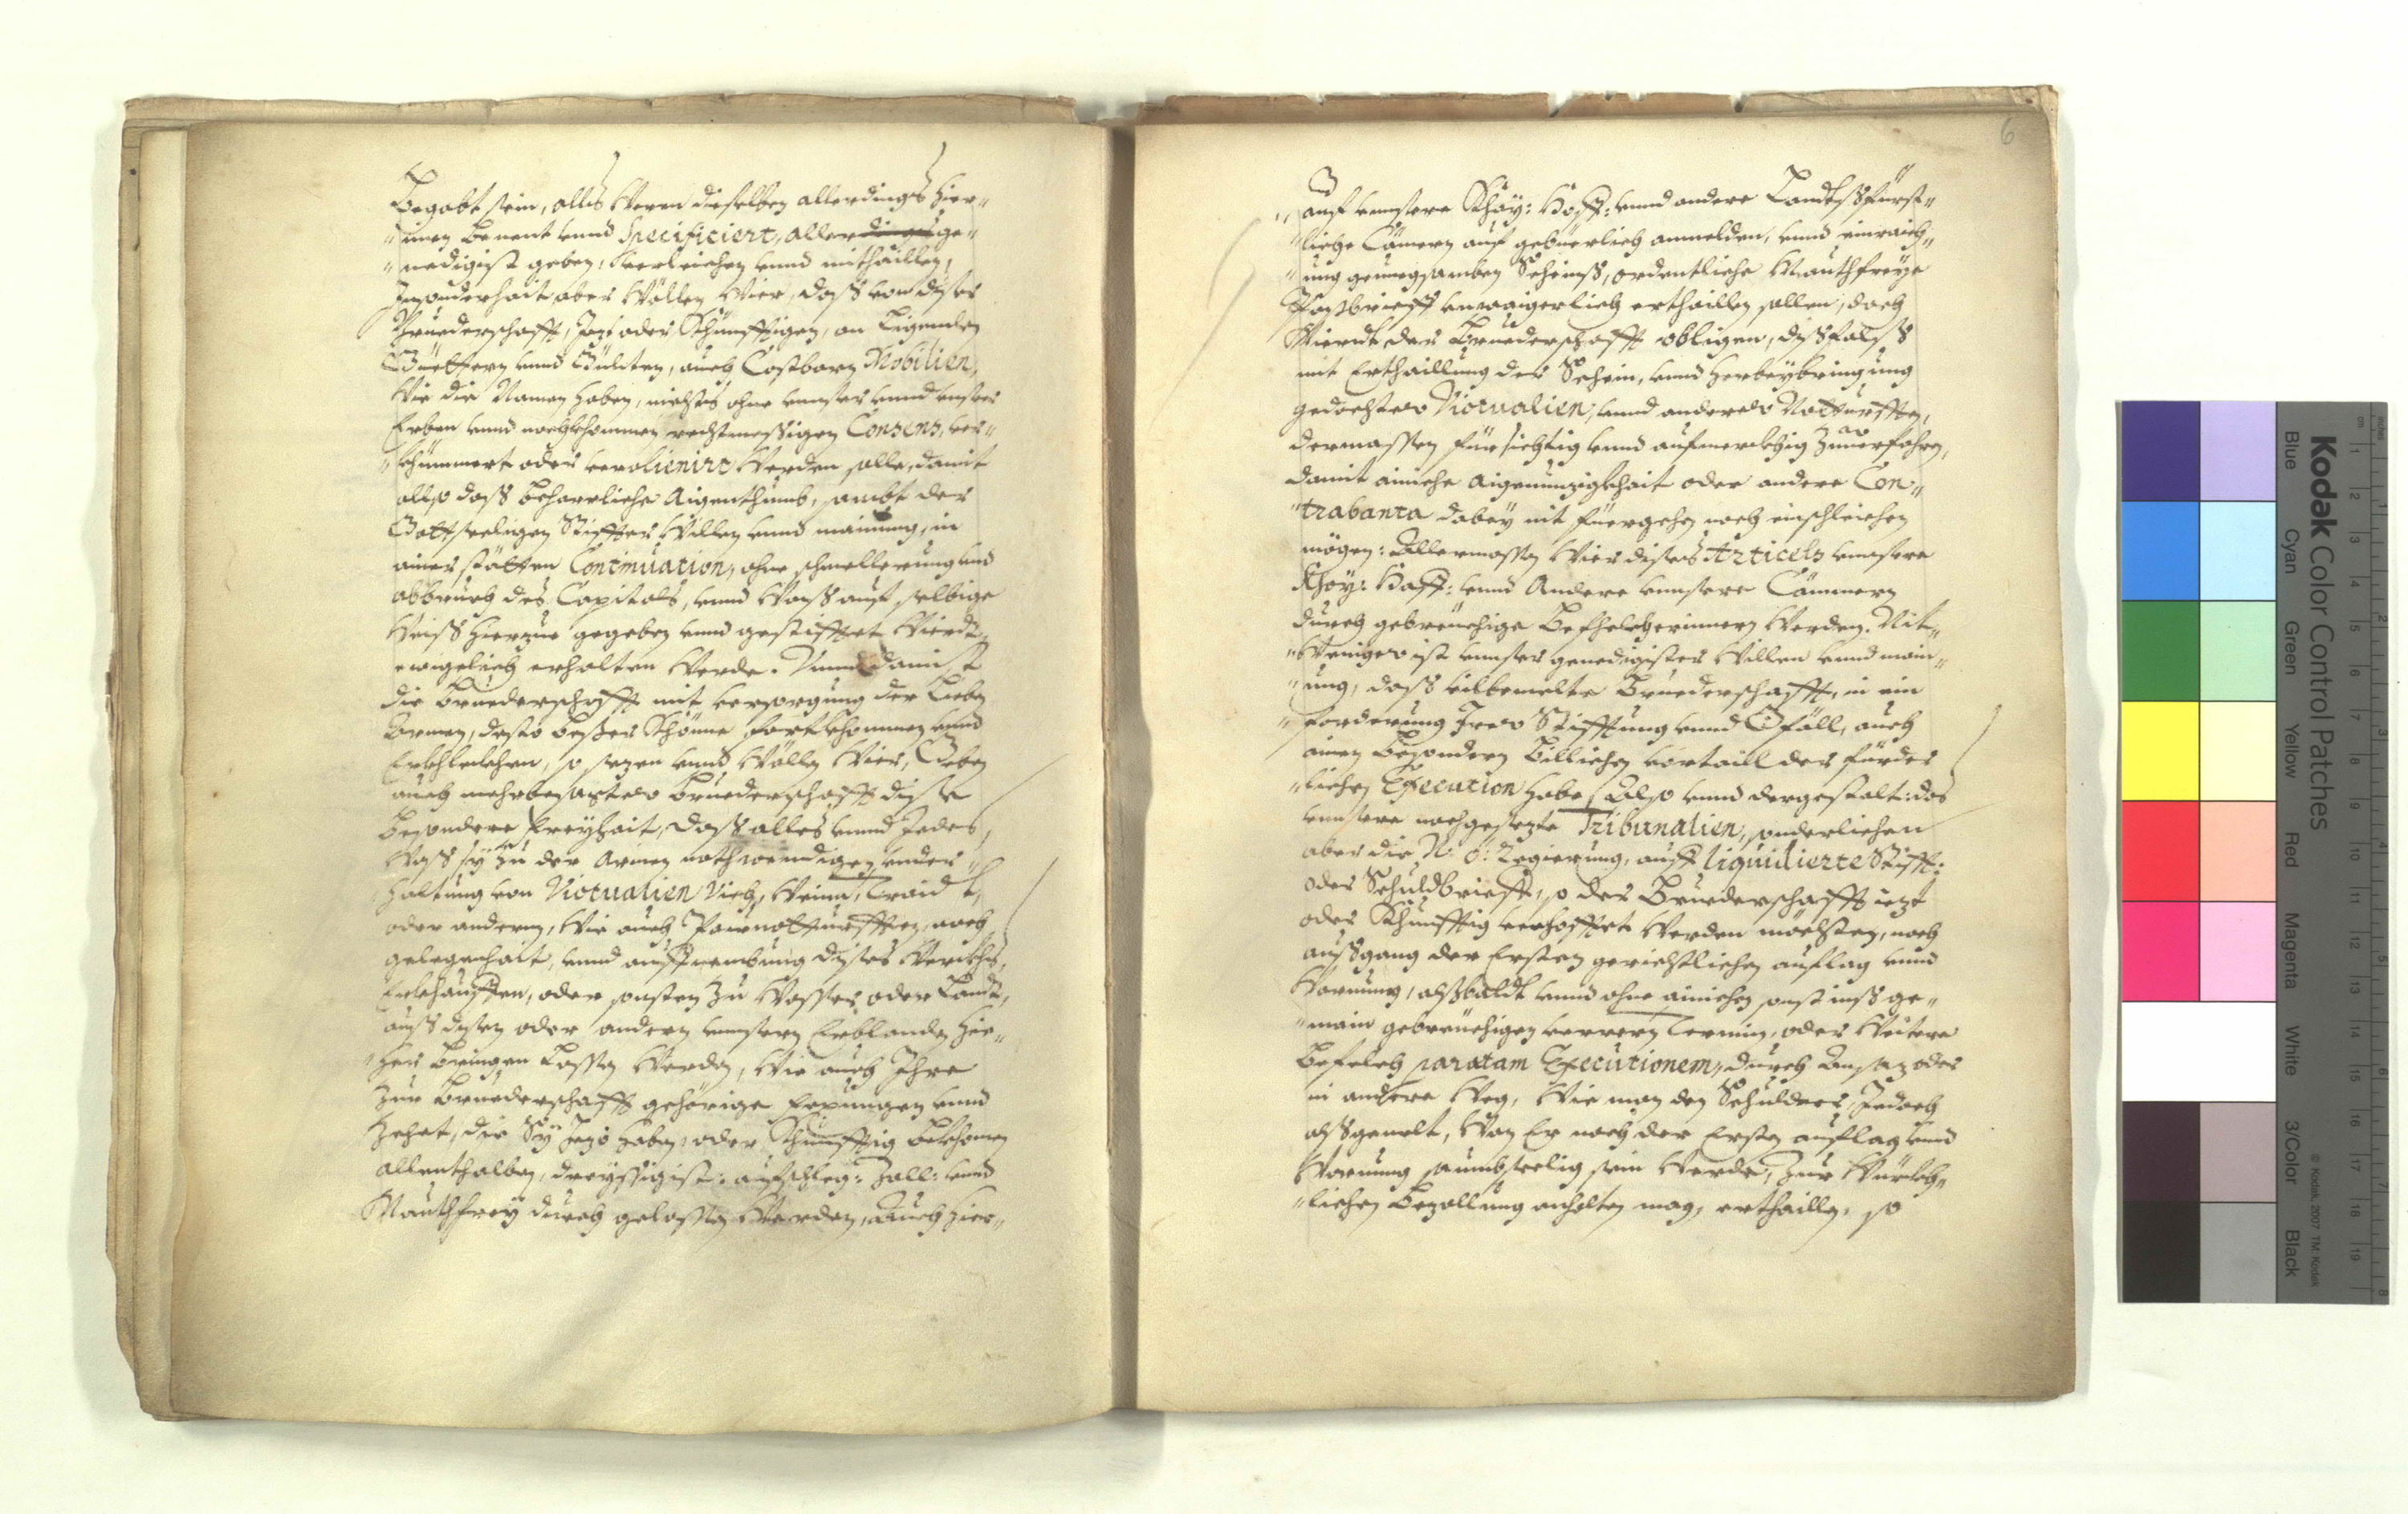 Begabt sein, alls Wern dieselben allerdings hier„
„innen benent vnnd Specificiert, allerdings ge„
„nedigist geben, verleichen vnnd mitthaillen,
Insonderhait aber Wöllen Wier, daß von diser
Bruederschafft, Jezt oder Khünfftigen, an Ligenden
Güettern vnnd Gülten, auch Costbarn Mobilien,
Wie die Namen haben, nichts ohne vnnser vnnd vnserer
Erben vnnd nachkhommen rechtmessigen Consens, ver„
„khümmert oder veralienirt Werden solle, damit
allso daß beharrliche Aigenthumb, sambt der
Gottseeligen Stiffter Willen vnnd mainung, in
ainer stätten Continuation, ohne schmellerung vnd
abbruch des Capitals, vnnd Waß auf selbige
Weiß hierzue gegeben vnnd gestifftet Wierdt,
ewigelich erhalten Werde. Vnnd damit
die Bruederschafft mit versorgung der Lieben
Armen, desto besser Khönne fortkhommen vnnd
Erkhleckhen, so sezen vnnd Wöllen Wier, Geben
auch mehrbesagter Bruederschafft dise
besondere Freyhait, daß alles vnnd Jedes,
Waß sy zu der Armen nothwendigen vnder„
haltung von Victualien Vich, Weinn, Traidt,
oder andern, Wie auch Paunotturfften, nach
gelegenhait, vnnd auffnembung dises Werckhs,
Erkhauffen, oder sonsten zu Wasser oder Landt,
auß disen oder andern vnnsern Erblanden hie„
„her bringen Lassen Werden, Wie auch Ihre
zur Bruederschafft gehörige Fexungen vnnd
Zehet, die Sy Jezo haben, oder Khünfftig bekhomen
allenthalben, dreyssigist: aufschlag: Zoll: vnnd
Mauthfrey durch gelassen Werden, Auch hier„
6
„auf vnnsere Khay: Hoff: vnnd andere Landtsfürst„
„liche Cämern auf gebüerlich anmelden, vnnd einraich„
„ung genuegsamben Scheinß, ordentliche Mauthfreye
Paßbrieff vnwaigerlich erthaillen sollen, doch
Wierdt der Bruederschafft obligen, dißfalß
mit Erthaillung der Schein, vnnd herbeybringung
gedachter Victualien, vnnd anderer Notturfften,
dermassen fürsichtig vnnd aufmerckhig zuuerfahren,
damit ainiche aigennuzigkhait oder andere Con„
„trabanta dabey nit fürgehen noch einschleichen
mögen: Allermassen Wier dises Articels vnnsere
Khay: Hoff: vnnd Andere vnnsere Cämmern
durch gebreuchige Befhelch erinnern Werden. Nit„
„Weniger ist vnnser genedigister Willen vnnd main„
„ung, daß vilbemelte Bruederschafft, in ein
„forderung Irer Stifftung vnnd Gföll, auch
ainen besondern Billichen vortaill der fürder
„lichen Execution habe, Also vnnd dergestalt: das
vnnsere nachgesezte Tribunalien, sonderlichen
aber die N: Ö: Regierung, auff liquidierte Stifft:
oder Schuldbrieff, so der Bruederschafft iezt
oder Khünfftig verhafftet Werden möchten, nach
außgang der Ersten gerichtlichen auflag vnnd
Warnung, alßbaldt vnnd ohne ainichen sonst inß ge„
„main gebreuchigen verrern Termin, oder Weitere
Befelch paratam Executionem, durch Ansaz oder
in andere Weg, Wie man den Schuldner, Jedoch
alß gemelt, Wan Er nach der Ersten auflag vnnd
Warnung saumbseelig sein Werde, Zur Würckh„
„lichen Bezallung anhalten mag, erthaillen, so
Kodak Color Control Patches
© Kodak, 2007 TM: Kodak
Blue Cyan Green Yellow Red Magenta White 3/Color Black